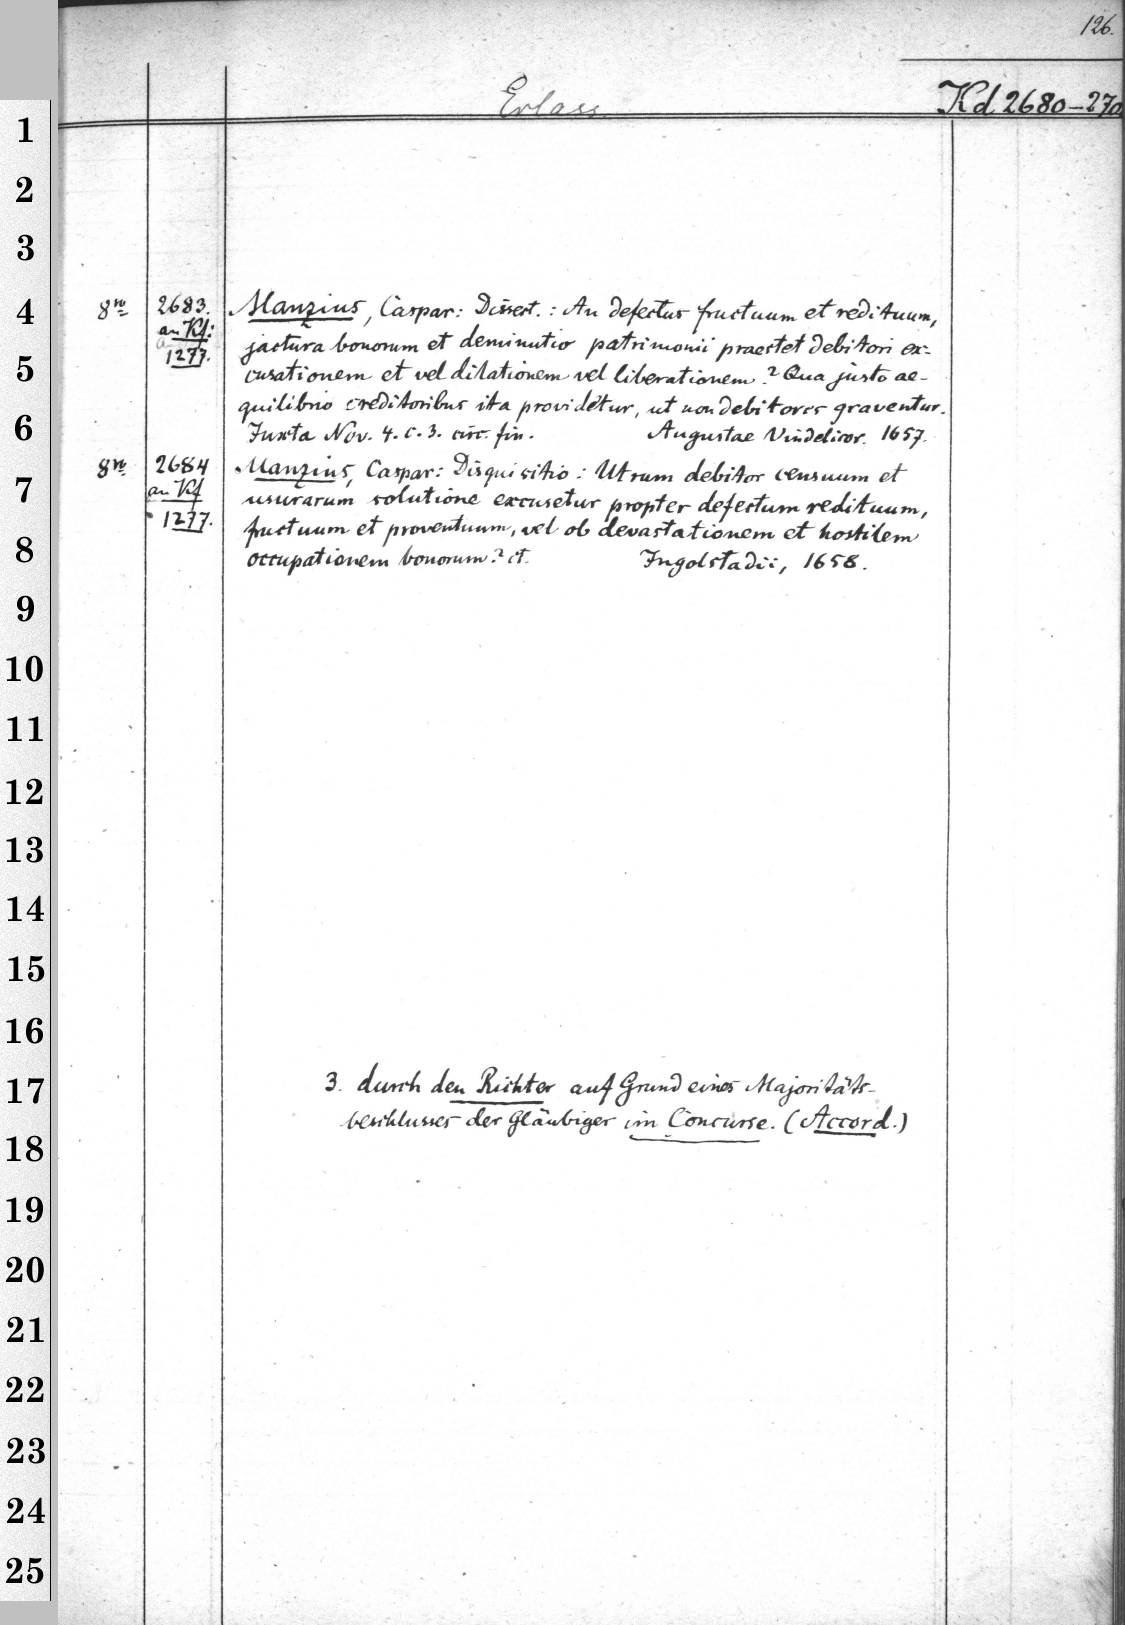 126.
Erlass.
Kd. 2680–270
8vo 2683. Manzius, Caspar: Dissert.: An defectus fructuum et redituum,
an Kf: jactura bonorum et deminutio patrimonii praestet debitori ex-
1277. cusationem et vel dilationem vel liberationem? Qua justo ae-
quilibrio creditoribus ita providetur, ut non debitores graventur.
Juxta Nov. 4. c. 3. circ. fin. Augustae Vindelicor. 1657.
8vo 2684 Manzius, Caspar: Disquisitio: Utrum debitor censuum et
an Kf usurarum solutione excusetur propter defectum redituum,
1277. fructuum et proventuum, vel ob devastationem et hostilem
occupationem bonorum? et. Ingolstadii, 1658.
3. durch den Richter auf Grund eines Majoritäts-
beschlusses der Gläubiger im Concurse. (Accord.)
1
2
3
4
5
6
7
8
9
10
11
12
13
14
15
16
17
18
19
20
21
22
23
24
25